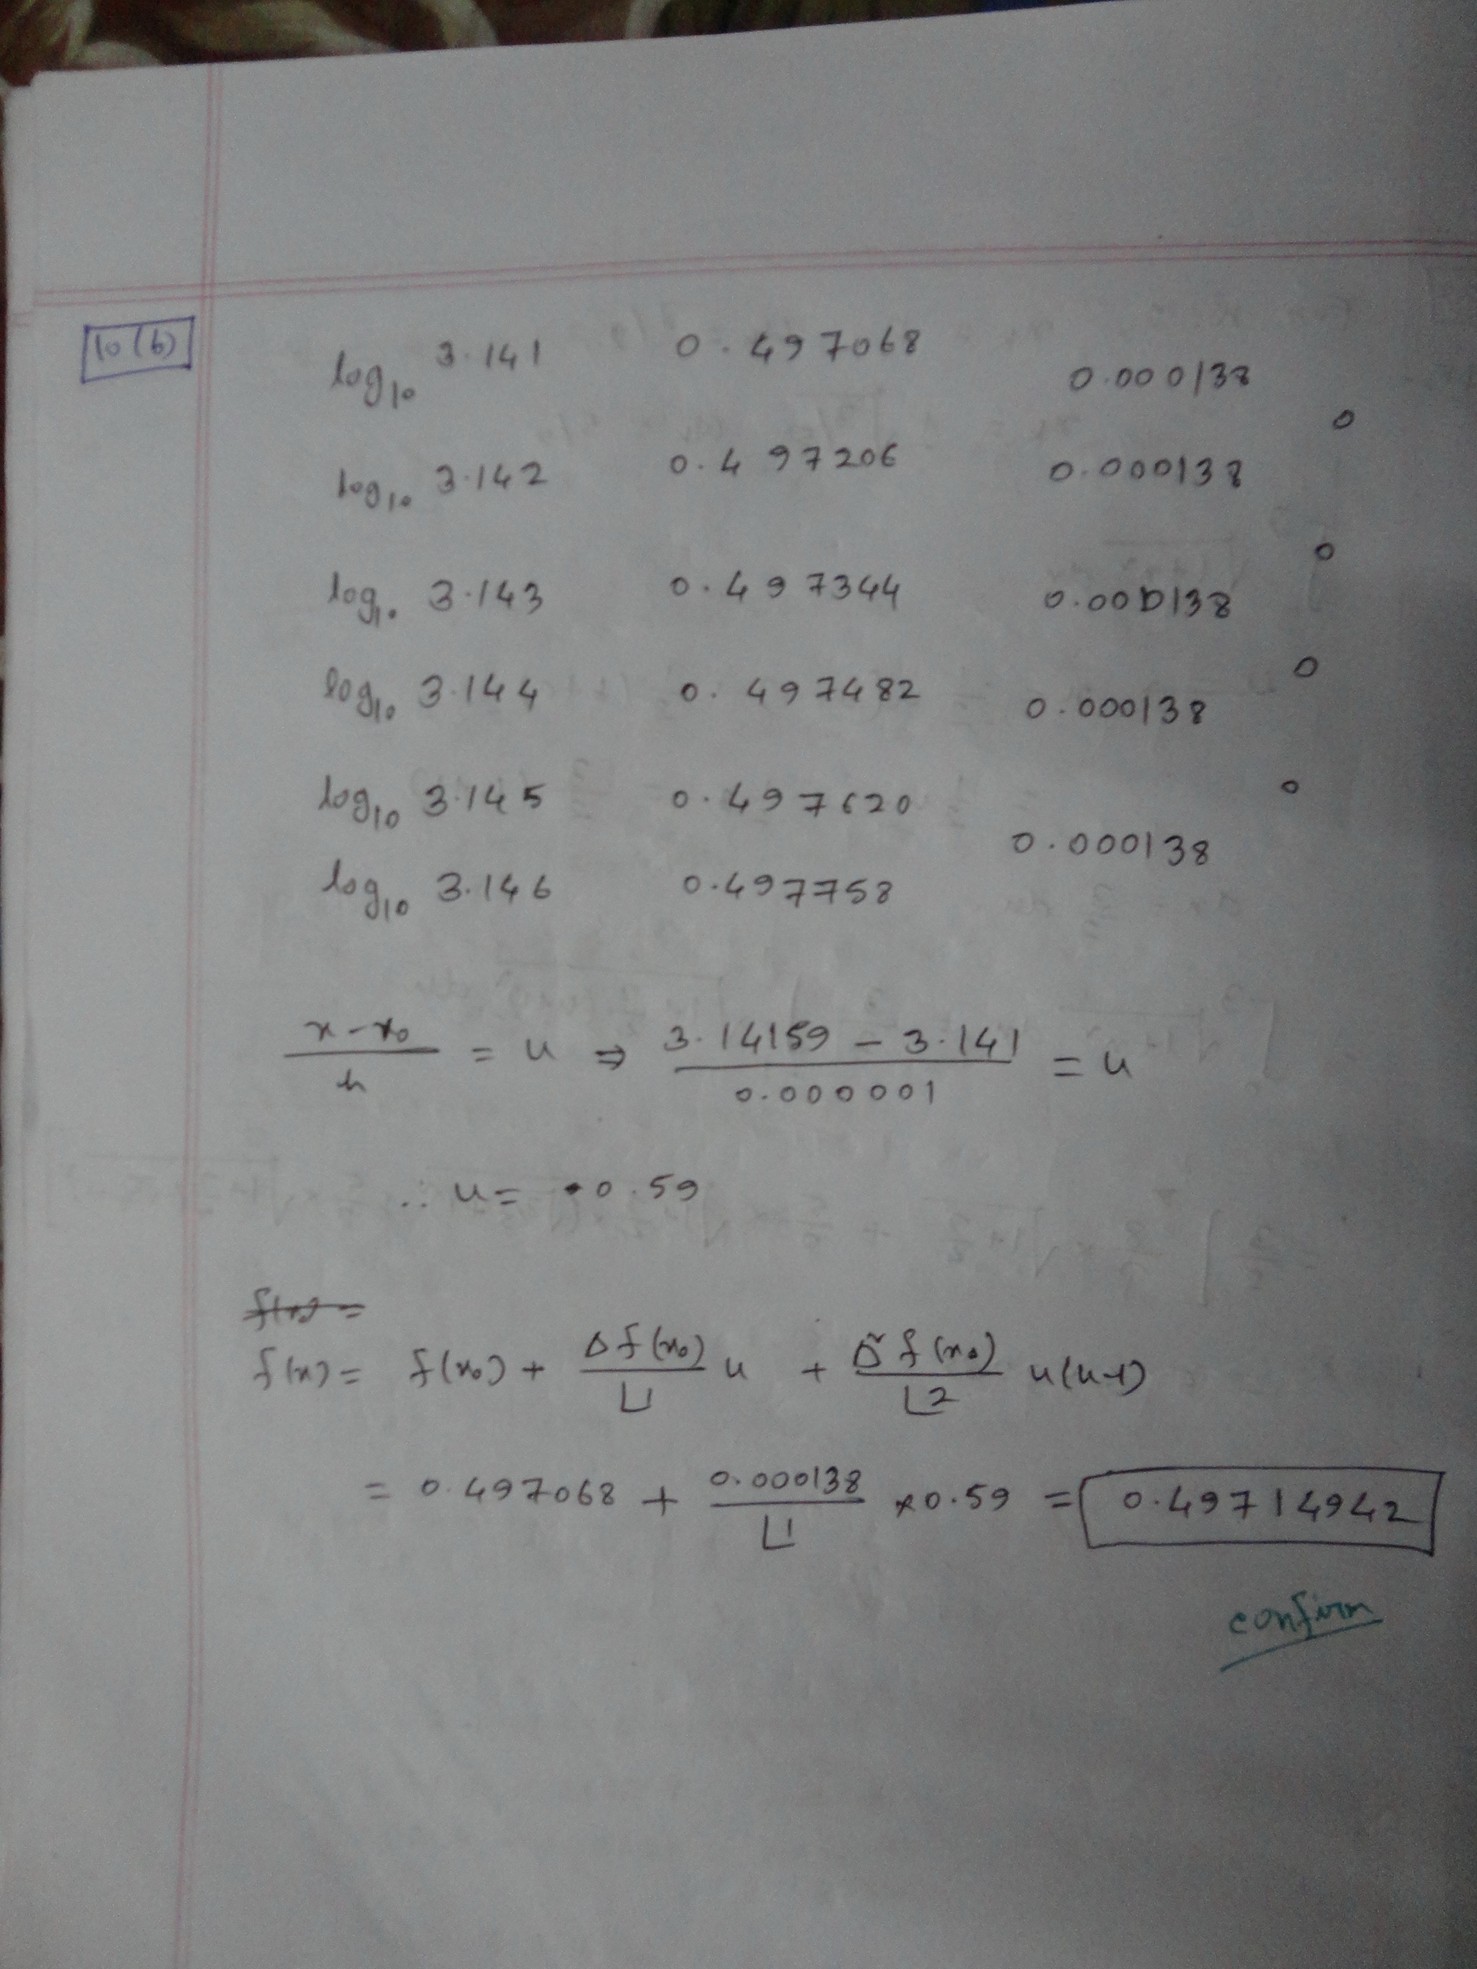 10 (b)
log10 3.141 0.497068 0.000138
0
log10 3.142 0.497206 0.000138
0
log10 3.143 0.497344 0.000138
0
log10 3.144 0.497482 0.000138
0
log10 3.145 0.497620
0.000138
log10 3.146 0.497758
(x-x₀)/h = u ⇒ (3.14159 - 3.141)/0.000001 = u
∴ u = 0.59
f(x) =
f(x) = f(x₀) + Δf(x₀)/∟1 u + Δ²f(x₀)/∟2 u(u-1)
= 0.497068 + 0.000138/∟1 × 0.59 = 0.49714942
confirm